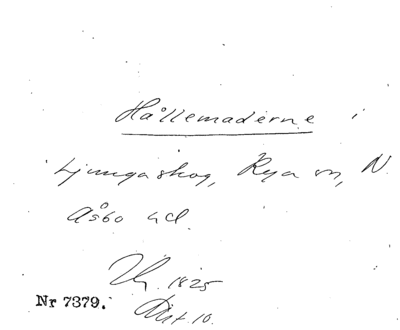 Hållemaderne i
Ljungaskog, Rya sn, N
Åsbo hd.
1825
Nr 7379. Akt. 10.